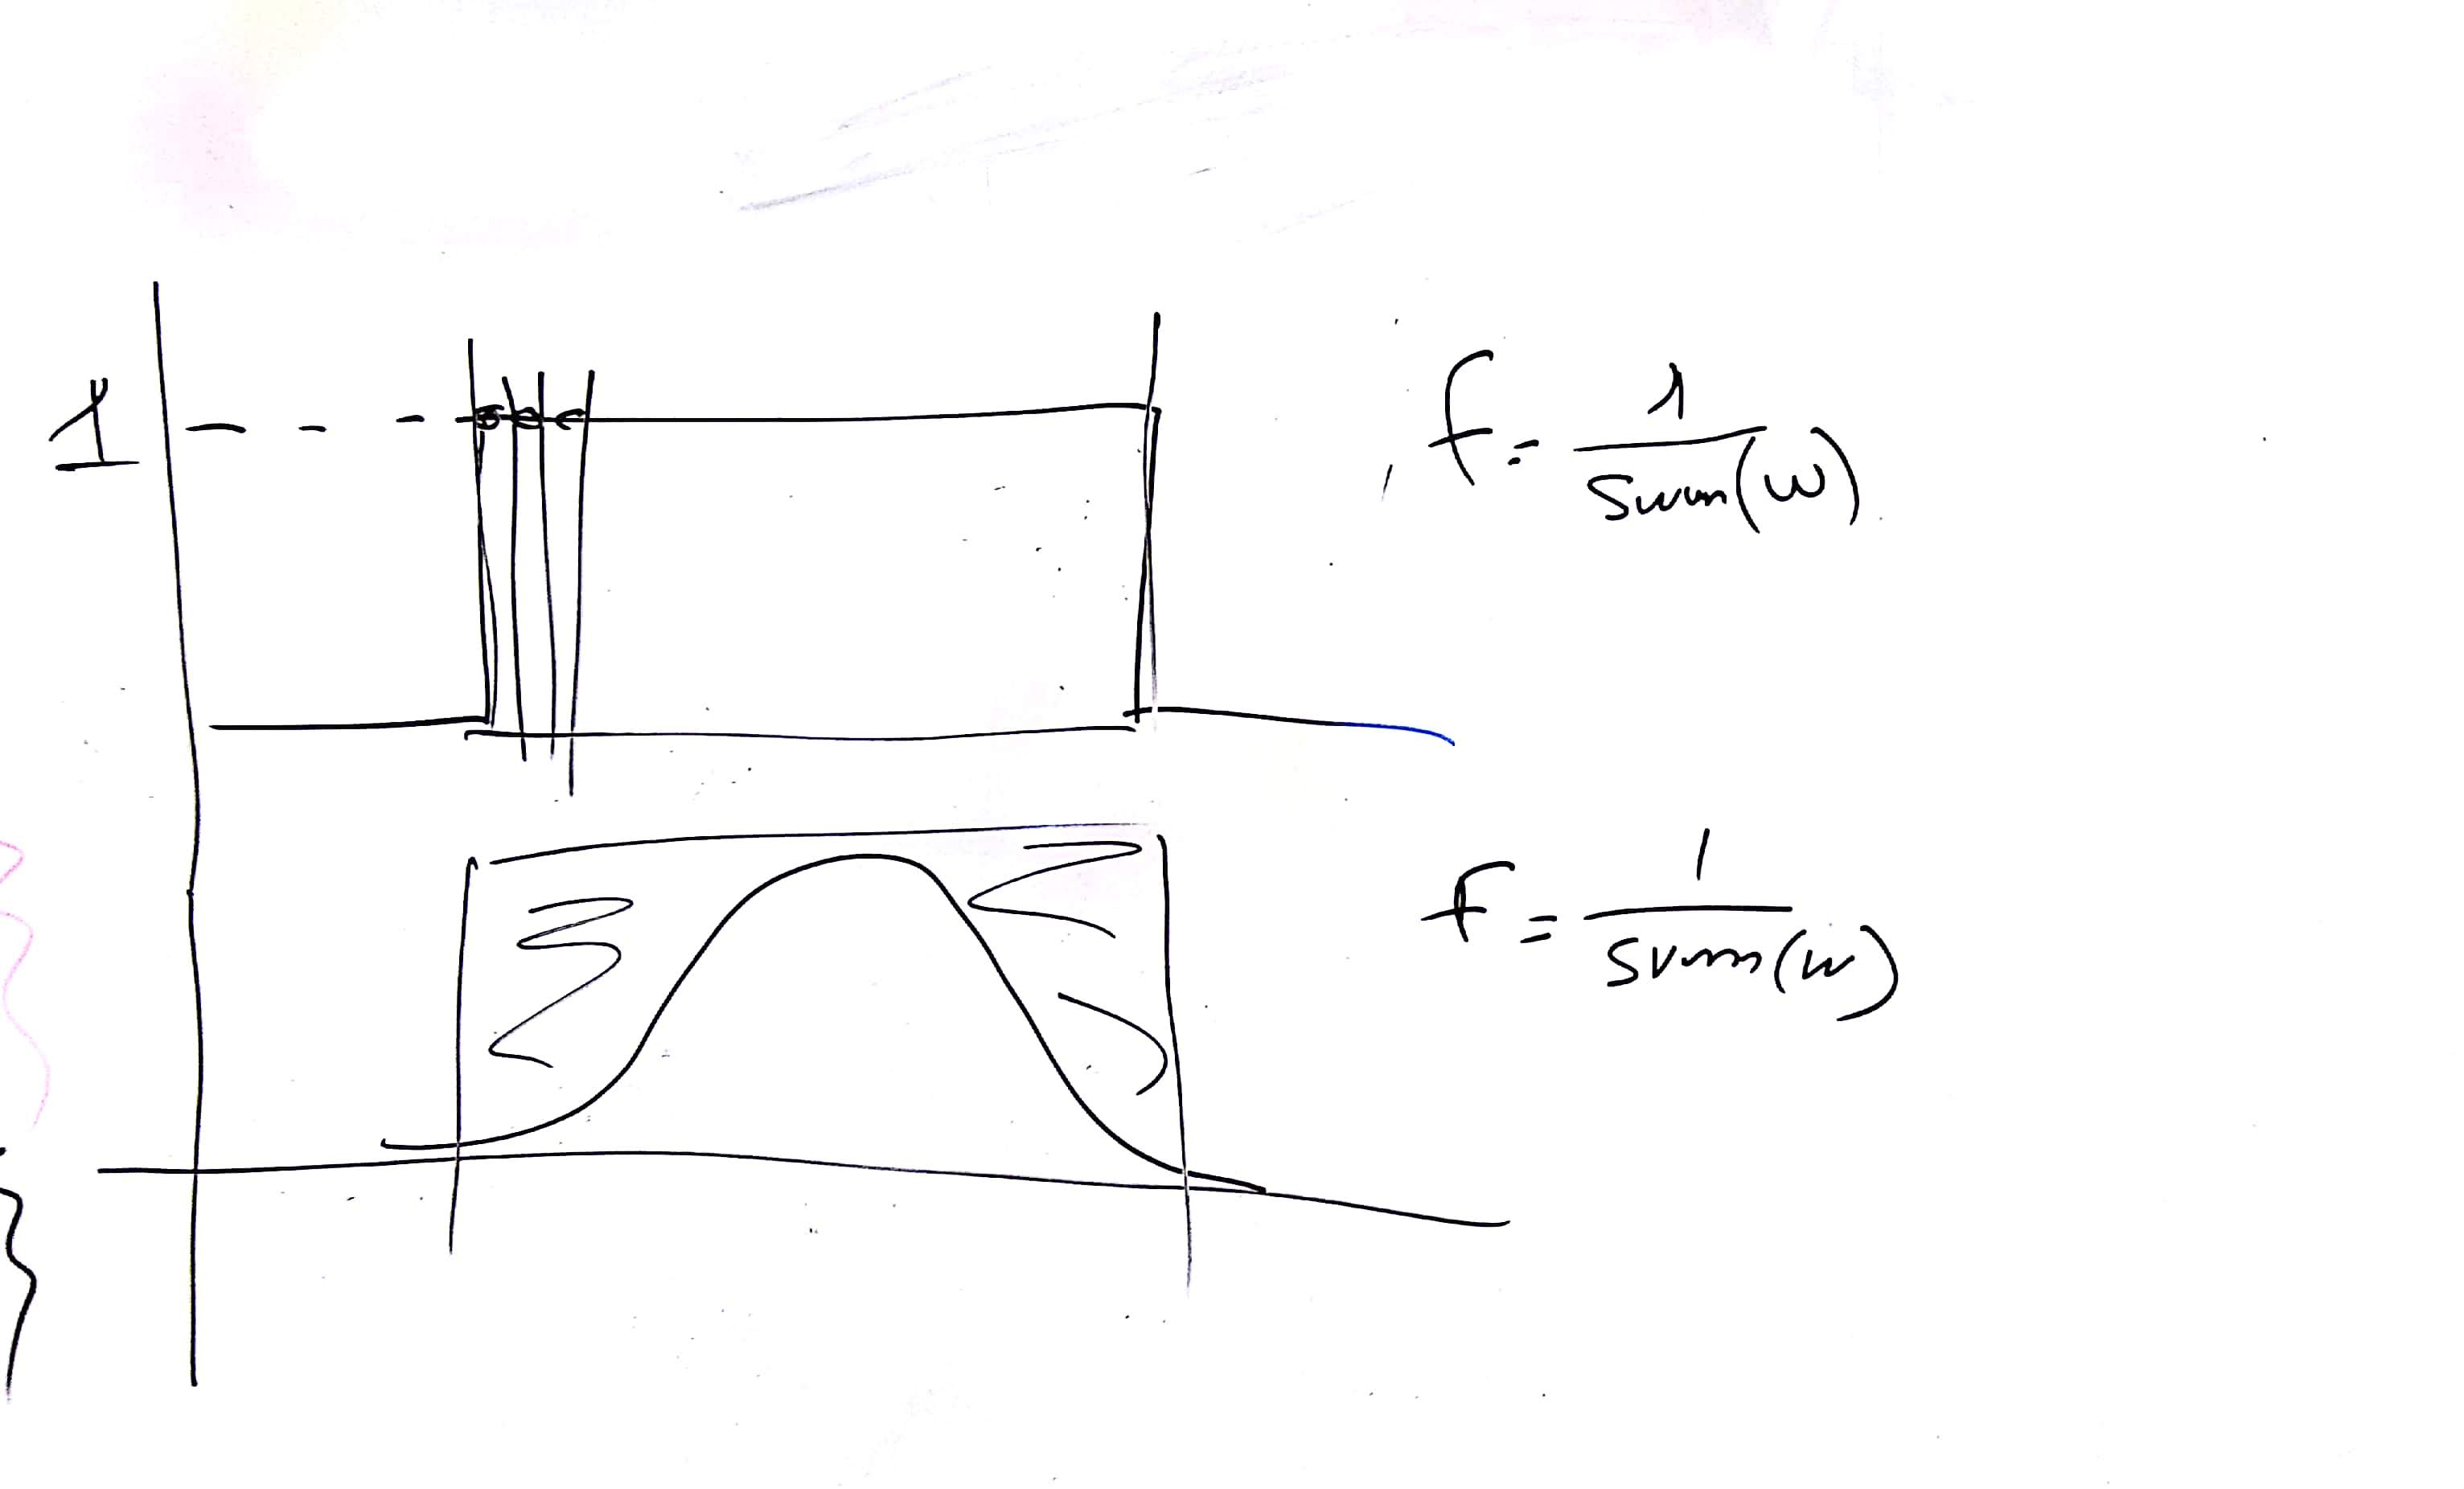 1
f = 1 / sum(w)
f = 1 / sum(w)